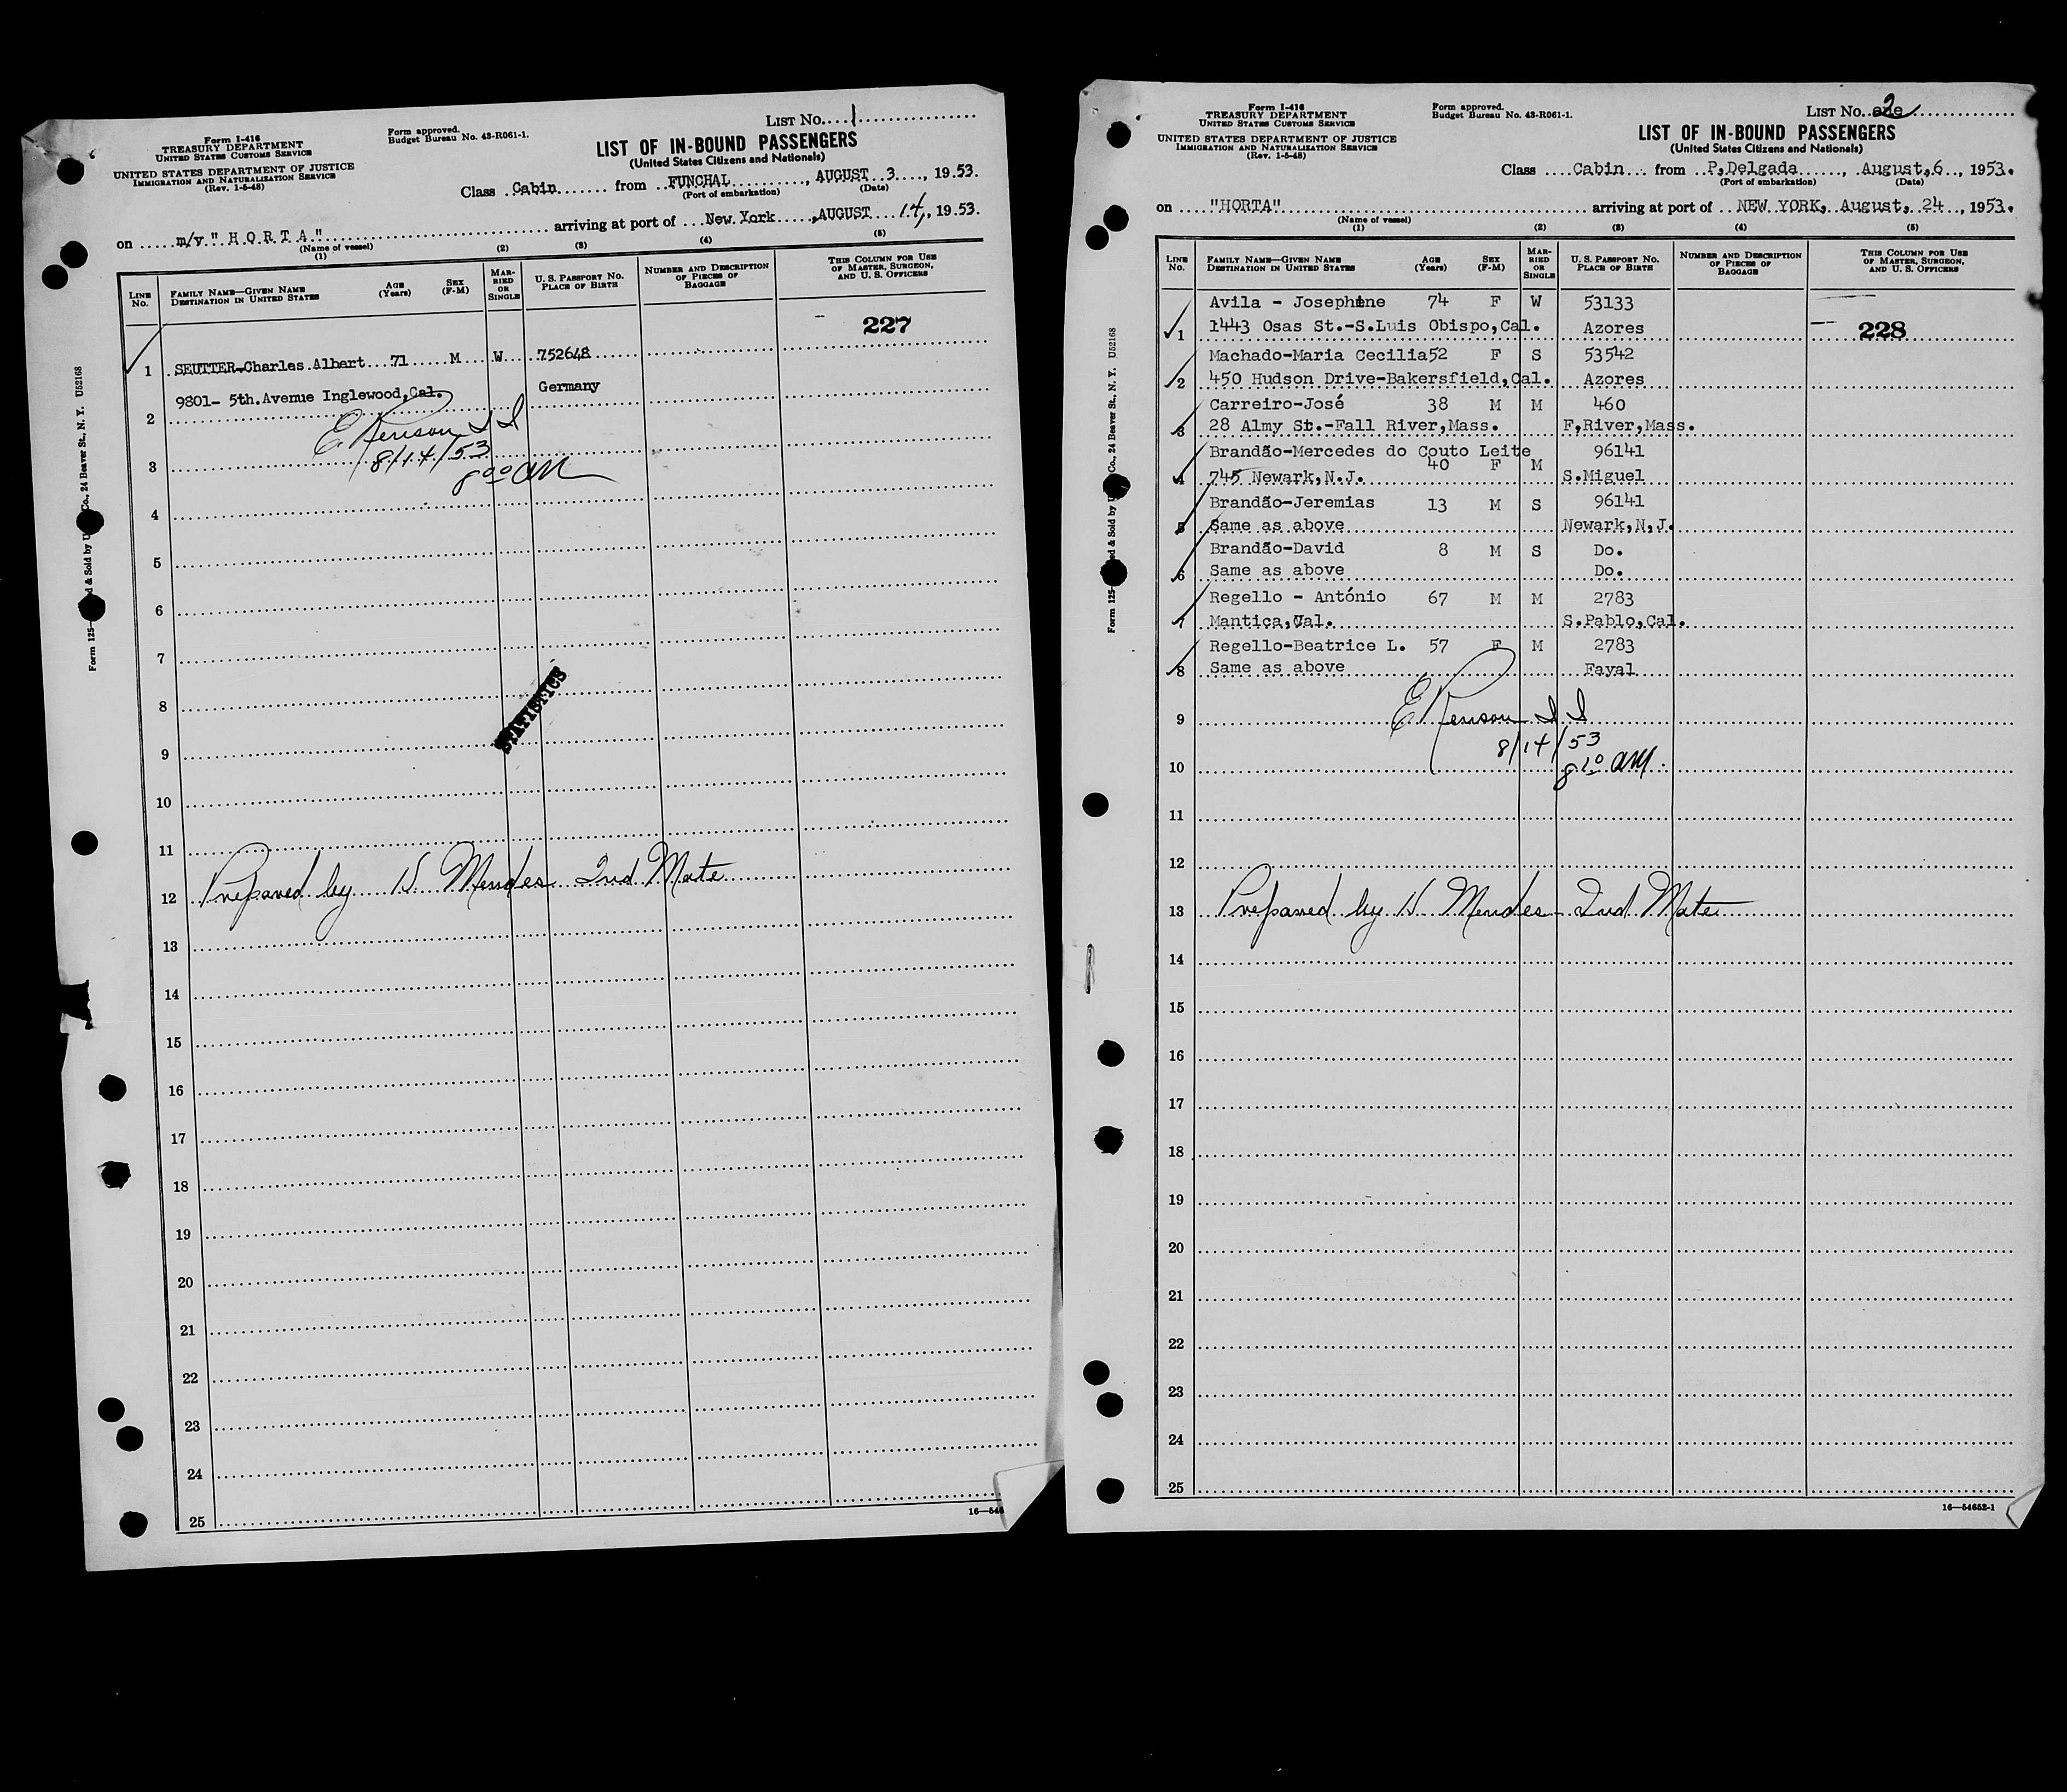 Form I-416
TREASURY DEPARTMENT
UNITED STATES CUSTOMS SERVICE
UNITED STATES DEPARTMENT OF JUSTICE
IMMIGRATION AND NATURALIZATION SERVICE
(Rev. 1-5-48)
Form approved.
Budget Bureau No. 43-R061-1.
LIST No. 1
LIST OF IN-BOUND PASSENGERS
(United States Citizens and Nationals)
Class Cabin from FUNCHAL, AUGUST 3, 1953.
(Port of embarkation) (Date)
on m/v "HORTA" arriving at port of New York, AUGUST 14, 1953.
(Name of vessel)
(1) (2) (3) (4) (5)
LINE No. FAMILY NAME—GIVEN NAME DESTINATION IN UNITED STATES AGE (Years) SEX (F-M) MARRIED OR SINGLE U. S. PASSPORT No. PLACE OF BIRTH NUMBER AND DESCRIPTION OF PIECES OF BAGGAGE THIS COLUMN FOR USE OF MASTER, SURGEON, AND U. S. OFFICERS
227
1 SEUTTER-Charles Albert 71 M W 752648
9801- 5th.Avenue Inglewood,Cal. Germany
2
E Renison I I
3 8/14/53
8 00 AM
4
5
6
7
8
STATISTICS
9
10
11
12 Prepared by H. Mendes 2nd Mate
13
14
15
16
17
18
19
20
21
22
23
24
25
16—546
Form 125
d & Sold by U
Co., 24 Beaver St., N. Y. U52168
Form I-416
TREASURY DEPARTMENT
UNITED STATES CUSTOMS SERVICE
UNITED STATES DEPARTMENT OF JUSTICE
IMMIGRATION AND NATURALIZATION SERVICE
(Rev. 1-5-48)
Form approved.
Budget Bureau No. 43-R061-1.
LIST No. one 2
LIST OF IN-BOUND PASSENGERS
(United States Citizens and Nationals)
Class Cabin from P,Delgada, August,6, 1953.
(Port of embarkation) (Date)
on "HORTA" arriving at port of NEW YORK, August, 24, 1953.
(Name of vessel)
(1) (2) (3) (4) (5)
LINE No. FAMILY NAME—GIVEN NAME DESTINATION IN UNITED STATES AGE (Years) SEX (F-M) MARRIED OR SINGLE U. S. PASSPORT No. PLACE OF BIRTH NUMBER AND DESCRIPTION OF PIECES OF BAGGAGE THIS COLUMN FOR USE OF MASTER, SURGEON, AND U. S. OFFICERS
Avila - Josephine 74 F W 53133
1 1443 Osas St.-S.Luis Obispo,Cal. Azores 228
Machado-Maria Cecilia52 F S 53542
2 450 Hudson Drive-Bakersfield,Cal. Azores
Carreiro-José 38 M M 460
3 28 Almy St.-Fall River,Mass. F,River,Mass.
Brandão-Mercedes do Couto Leite 96141
40 F M
4 745 Newark,N.J. S.Miguel
Brandão-Jeremias 13 M S 96141
5 Same as above Newark,N,J.
Brandão-David 8 M S Do.
6 Same as above Do.
Regello - António 67 M M 2783
7 Mantica,Cal. S.Pablo,Cal.
Regello-Beatrice L. 57 F M 2783
8 Same as above Fayal
9 E Renison I I
8/14/53
10 8 10 AM.
11
12
13 Prepared by H. Mendes - 2nd Mate
14
15
16
17
18
19
20
21
22
23
24
25
16—54652-1
Form 125
ed & Sold by U
Co., 24 Beaver St., N. Y. U52168